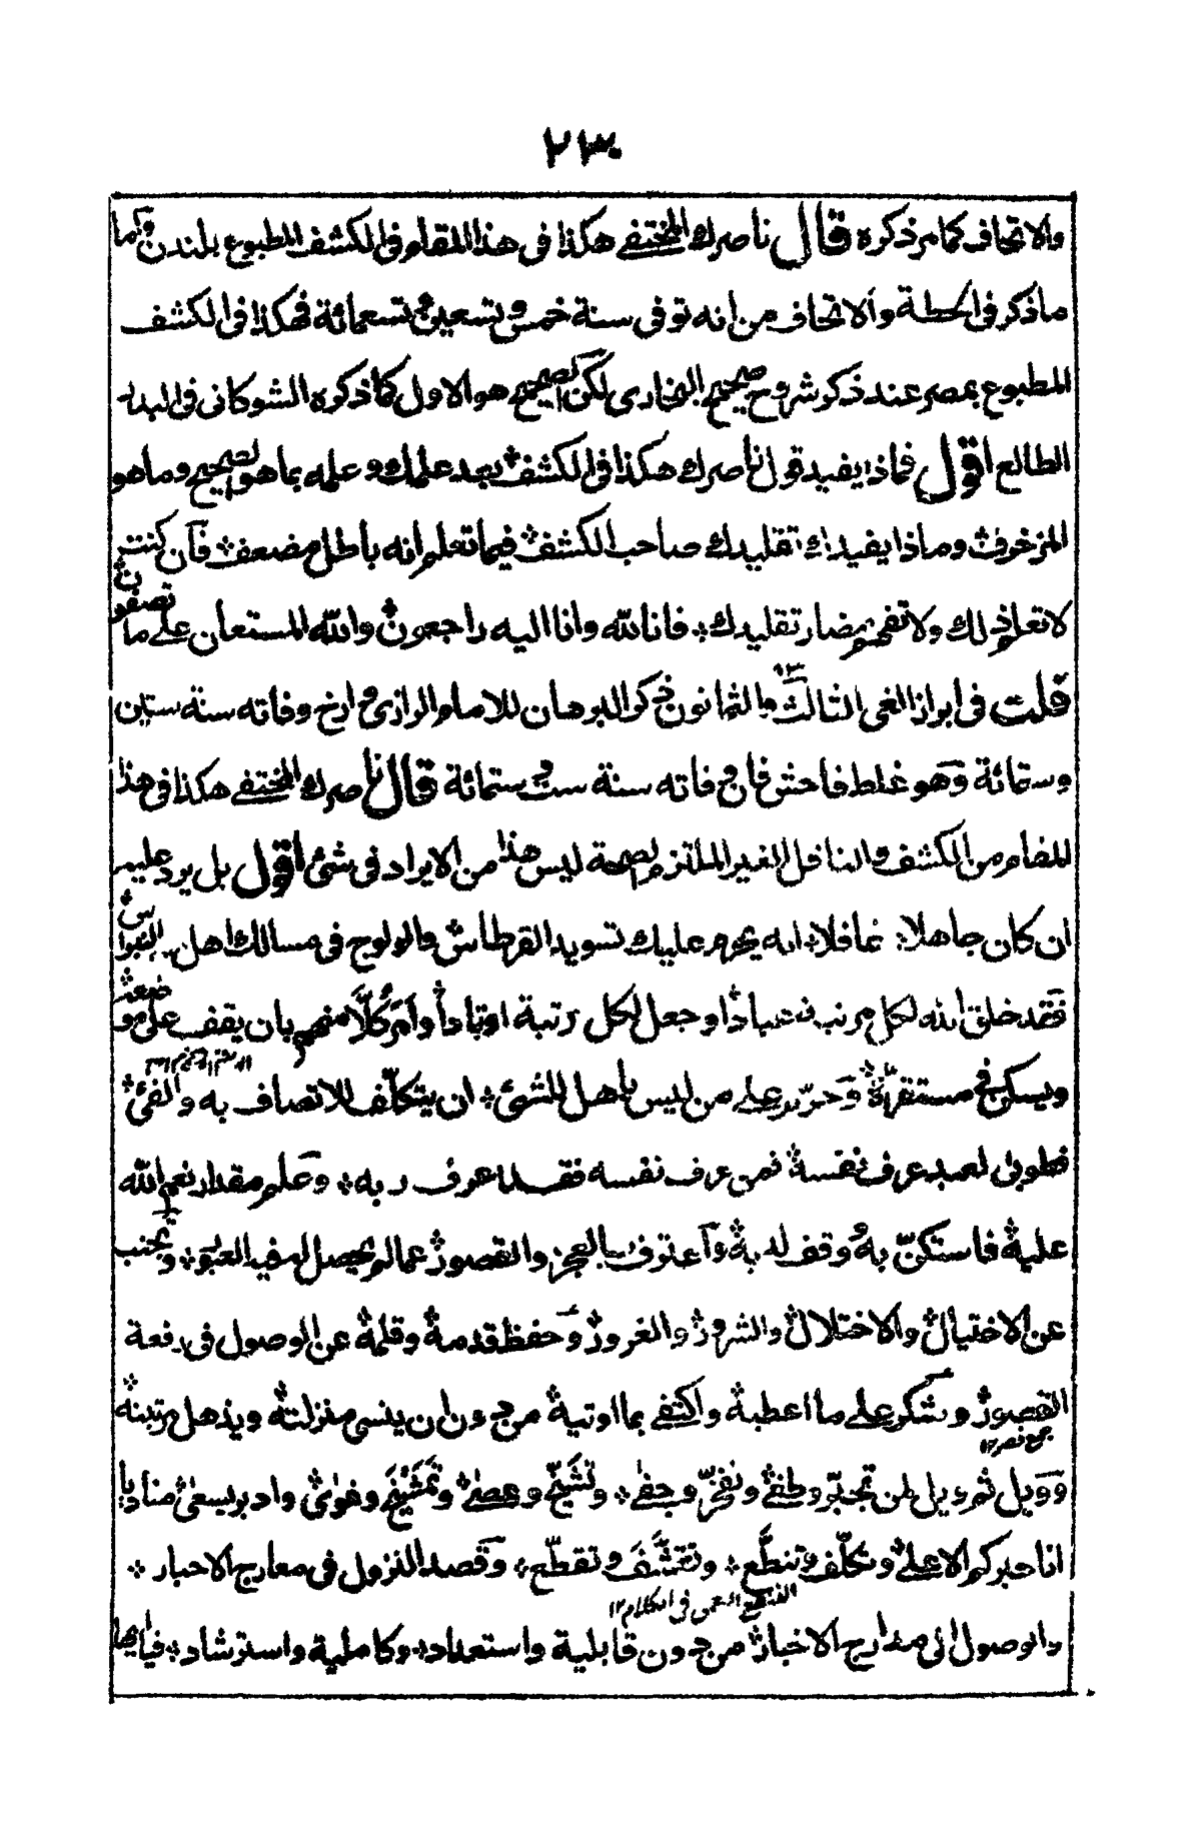 ٢٣٠
والاتحاف كما مر ذكره قال ناصرك المختفى هكذا فى هذا المقام فى الكشف المطبوع بلندن واما
ما ذكر فى الحطة والاتحاف من انه توفى سنة خمس وتسعين وتسعمائة فهكذا فى الكشف
المطبوع بمصر عند ذكر شروح صحيح البخارى لكن الصحيح هو الاول كما ذكره الشوكانى فى البدر
الطالع اقول فماذا يفيد قول ناصرك هكذا فى الكشف بعد علمك وعلمه بما هو الصحيح وما هو
المزخرف وماذا يفيدك تقليدك صاحب الكشف فيما تعلم انه باطل مضعف فان كنت
لا تعلم ذلك ولا تفهم مضار تقليدك فانا لله وانا اليه راجعون والله المستعان على ما تصفون
قلت فى ابراز الغى الثالث والثمانون ذكر البرهان للامام الرازى وارخ وفاته سنة ستين
وستمائة وهو غلط فاحش فان وفاته سنة ست وستمائة قال ناصرك المختفى هكذا فى هذا
المقام من الكشف والناقل الغير الملتزم لصحة ليس هذا من الايراد فى شئ اقول بل يرد عليه
ان كان جاهلا غافلا انه يحرم عليك تسويد القرطاس والولوج فى مسالك اهل
فقد خلق الله لكل مرتبة عبادا وجعل لكل رتبة اوتادا وأمر كلًّا منهم بان يقف على موضعه
ويسكن فى مستقره وحرّم على من ليس باهل للشئ ان يتكلّف للاتصاف به والفئ
فطوبى لعبد عرف نفسه فمن عرف نفسه فقد عرف ربه وعلم مقدار نعم الله
عليه فاستكنّ به ووقف لديه واعترف بالعجز والقصور عما لم يحصل له فيه العبور وتجنب
عن الاختيال والاختلال والشرور والغرور وحفظ قدمه وقلمه عن الوصول فى رفعة
القصور وشكر على ما اعطيه واكتفى بما اوتيه من دون ان ينسى منزلته ويذهل مرتبته
جمع قصر ١٢
وويل ثم ويل لمن تجبّر وطغى وتفخّر وجفى وتشيّخ وعصى وتمشيخ وغوى وادبر يسعى مناديا
انا حبركم الاعلى وتكلّف وتنطّع وتقشّف وتقطّع وقصد النزول فى معارج الاحبار
التنطع التعمق فى الكلام ١٢
والوصول الى مدارج الاخبار من دون قابلية واستعداد وكاملية واسترشاد فيا ايها